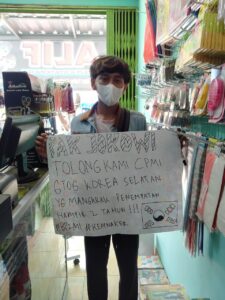 ALIF
PAK JOKOWI
TOLONG KAMI CPMI
G TO G KOREA SELATAN
YG MANGKRAK PENEMPATAN
HAMPIR 2 TAHUN !!!
#BP2MI #KEMNAKER